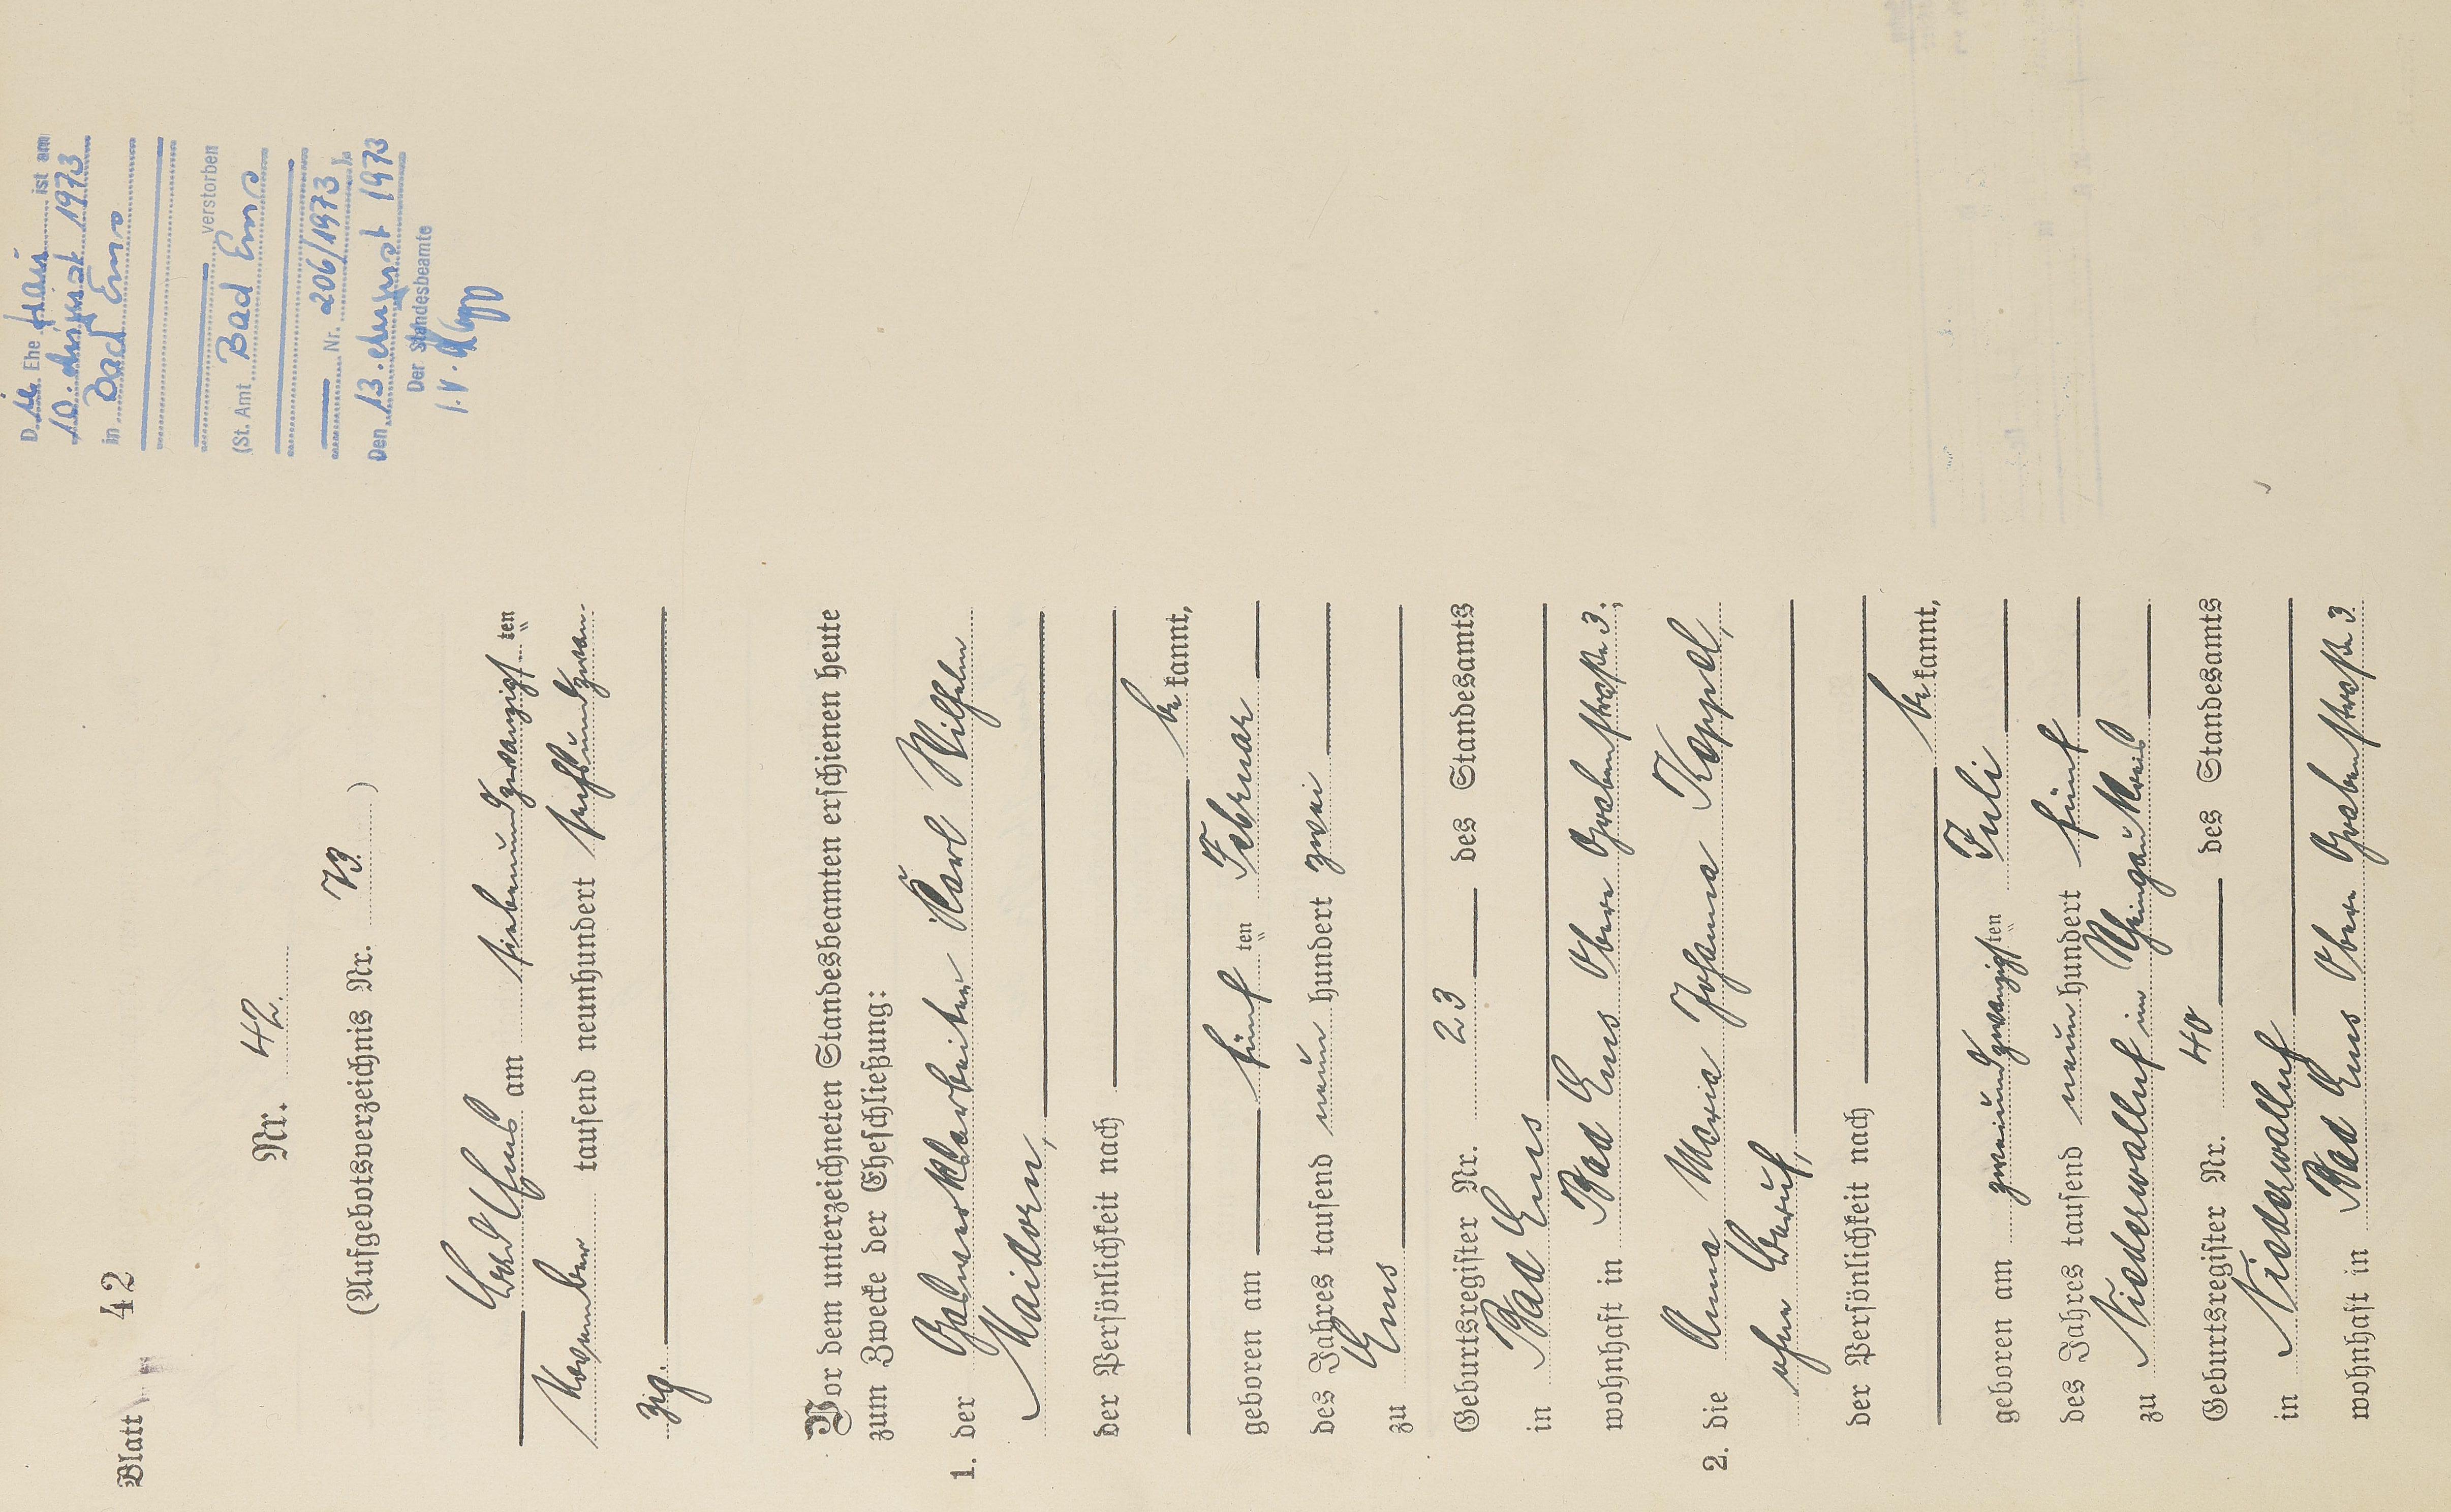 Blatt 42
Die Ehefrau ist am
10. August 1973
in Bad Ems
verstorben
(St. Amt Bad Ems
Nr. 206/1973).
Den 13. August 1973
Der Standesbeamte
I.V.
Nr. 42.
(Aufgebotsverzeichnis Nr. 73.)
Bad Ems am siebenundzwanzigsten
November tausend neunhundert sechsundzwan-
zig.
Vor dem unterzeichneten Standesbeamten erschienen heute
zum Zwecke der Eheschließung:
1. der Gaswerksarbeiter Karl Wilhelm
Maidorn,
der Persönlichkeit nach
bekannt,
geboren am fünften Februar
des Jahres tausend neunhundert zwei
zu Ems
Geburtsregister Nr. 23 des Standesamts
in Bad Ems
wohnhaft in Bad Ems Obere Grabenstraße 3;
2. die Anna Maria Johanna Koppel,
ohne Beruf,
der Persönlichkeit nach
bekannt,
geboren am zweiundzwanzigsten Juli
des Jahres tausend neunhundert fünf
zu Niederwalluf im Rheingaukreis
Geburtsregister Nr. 40 des Standesamts
in Niederwalluf
wohnhaft in Bad Ems Obere Grabenstraße 3.